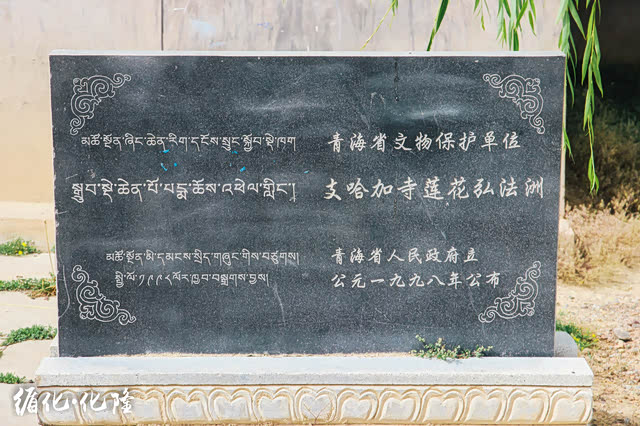 མཚོ་སྔོན་ཞིང་ཆེན་རིག་དངོས་སྲུང་སྐྱོབ་སྡེ་ཁག
སྒྲུབ་སྡེ་ཆེན་པོ་པདྨ་ཆོས་འཕེལ་གླིང་།
མཚོ་སྔོན་མི་དམངས་སྲིད་གཞུང་གིས་བཙུགས།
སྤྱི་ལོ་༡༩༩༨ལོར་ཁྱབ་བསྒྲགས་བྱས།
青海省文物保护单位
支哈加寺莲花弘法洲
青海省人民政府立
公元一九九八年公布
循化·化隆